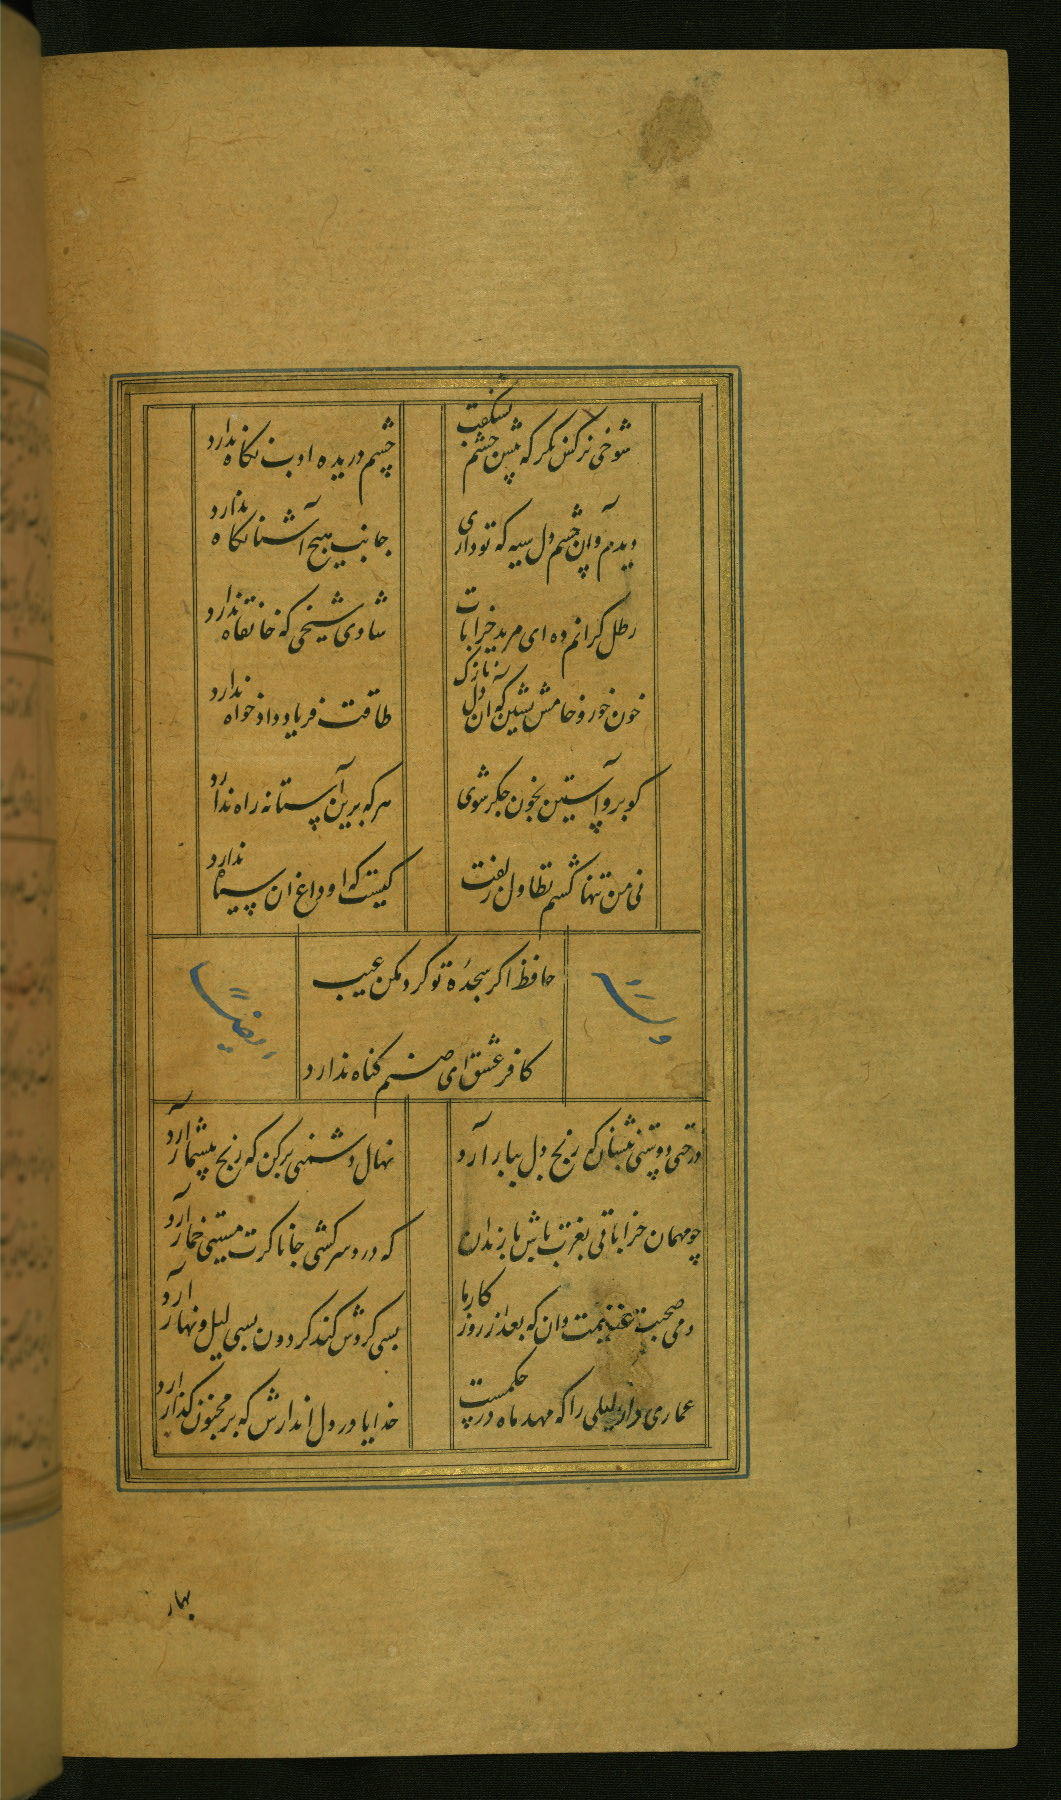 شوخی نرکس نکر که پیش چشمت بشکفت
چشم دریده ادب نکاه ندارد
دیدم و آن چشم دل سیه که تو داری
جانب هیچ آشنا نکاه ندارد
رطل کرانم ده ای مرید خرابات
شادی شیخی که خانقاه ندارد
خون خور و خامش نشین که آن دل نازک
طاقت فریاد دادخواه ندارد
کو برو آستین بخون جکر شوی
هر که برین آستانه راه ندارد
نی من تنها کشم تطاول زلفت
کیست که او داغ ان سیاه ندارد
حافظ اکر سجده تو کرد مکن عیب
کافر عشق ای صنم کناه ندارد
وله
ایضا
درخت دوستی بنشان که رنج دل ببار آرد
نهال دشمنی برکن که رنج بیشمار آرد
چو مهمان خراباتی بعزت باش با رندان
که درد سر کشی جانا کرت مستی خمار آرد
دمی صحبت غنیمت دان که بعد از روزکار ما
بسی کردش کند کردون بسی لیل و نهار ارد
عماری دار لیلی را که مهد ماه در حکمست
خدایا در دل اندازش که بر مجنون کذار ارد
بهار